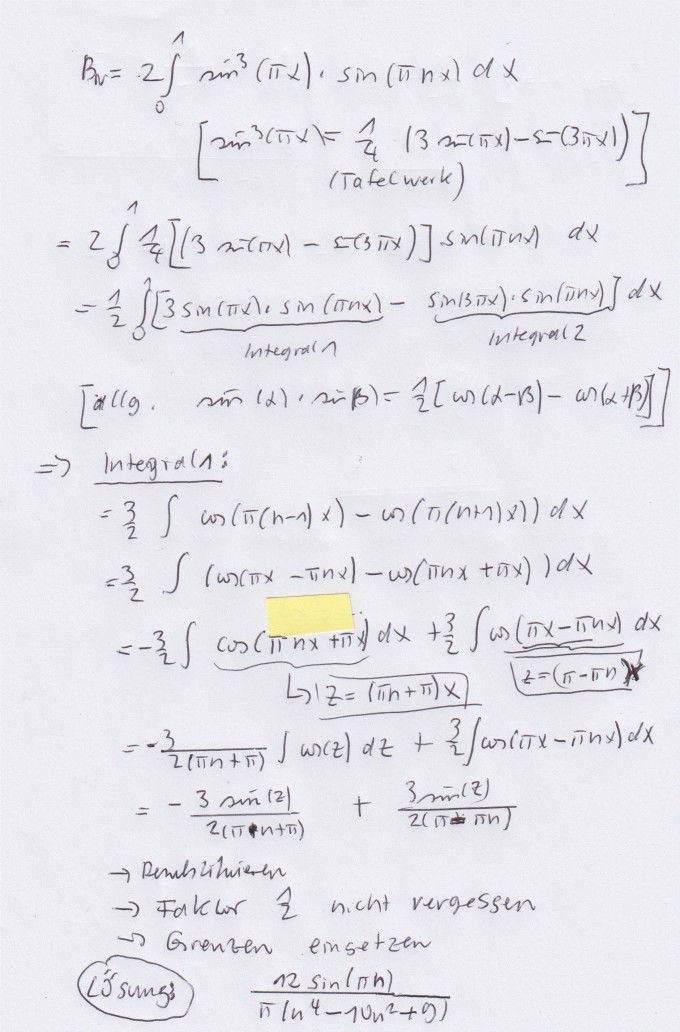 Bₙ = 2 ∫₀¹ sin³(πx) · sin(πnx) dx
[sin³(πx) = 1/4 (3 sin(πx) – sin(3πx))]
(Tafelwerk)
= 2 ∫₀¹ 1/4 [(3 sin(πx) – sin(3πx))] sin(πnx) dx
= 1/2 ∫₀¹ [3 sin(πx) · sin(πnx) – sin(3πx) · sin(πnx)] dx
Integral 1 Integral 2
[allg. sin(α) · sin β) = 1/2 [cos(α–β) – cos(α+β)]]
=> Integral 1:
= 3/2 ∫ cos(π(n–1)x) – cos(π(n+1)x)) dx
= 3/2 ∫ (cos(πx – πnx) – cos(πnx + πx)) dx
= –3/2 ∫ cos(πnx + πx) dx + 3/2 ∫ cos(πx – πnx) dx
↳ z = (πn + π)x z = (π – πn)x
= –3/(2(πn + π)) ∫ cos(z) dz + 3/2 ∫ cos(πx – πnx) dx
= – 3 sin(z)/(2(π n + π)) + 3 sin(z)/(2(π – πn))
→ Resubstituieren
→ Faktor 1/2 nicht vergessen
→ Grenzen einsetzen
Lösung: 12 sin(πn)/(π(n⁴ – 10n² + 9))